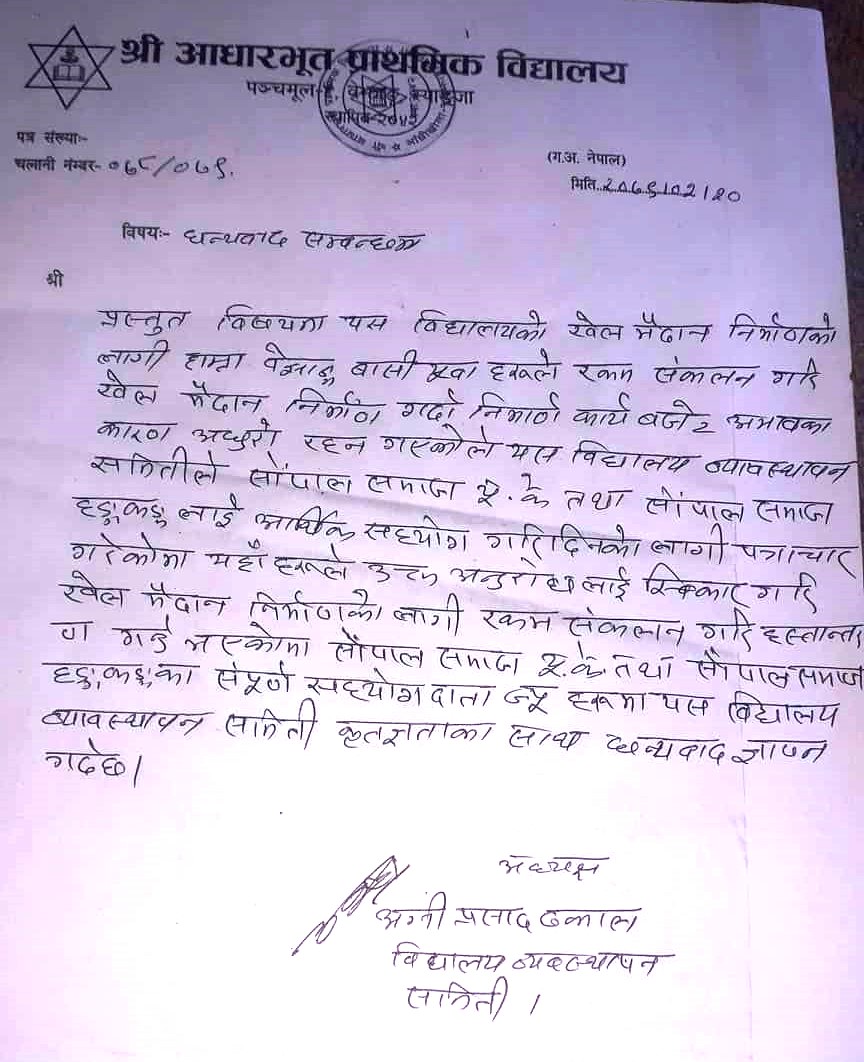 श्री आधारभूत प्राथमिक विद्यालय
पञ्चमूल
स्थापित-२०४२
पत्र संख्याः-
चलानी नम्बर- ०७८/०७९.
(ग.अ. नेपाल)
मिति..२०७९/०२/२०
विषयः- धन्यवाद सम्बन्धमा
श्री
प्रस्तुत विषयमा यस विद्यालयको खेल मैदान निर्माणको
लागी हाम्रा वासी युवा हरूले रकम संकलन गरि
खेल मैदान निर्माण गर्दा निर्माण कार्य बजेट अभावका
कारण अधुरो रहन गएकोले यस विद्यालय व्यावस्थापन
समितीले सोंपाल समाज यू.के तथा सोंपाल समाज
हङ्कङ्ग लाई आर्थिक सहयोग गरिदिनको लागी पत्राचार
गरेकोमा यहाँ हरूले उक्त अनुरोध लाई स्विकार गरि
खेल मैदान निर्माणको लागी रकम संकलन गरि हस्तान्तर
ण गर्नु भएकोमा सोंपाल समाज यू.के तथा सोंपाल समाज
हङ्कङ्गका संपूर्ण सहयोग दाता ज्यू हरूमा यस विद्यालय
व्यावस्थापन समिती कृतज्ञताका साथ धन्यवाद ज्ञापन
गर्दछ।
अध्यक्ष
अग्नी प्रसाद ढकाल
विद्यालय व्यवस्थापन
समिती ।